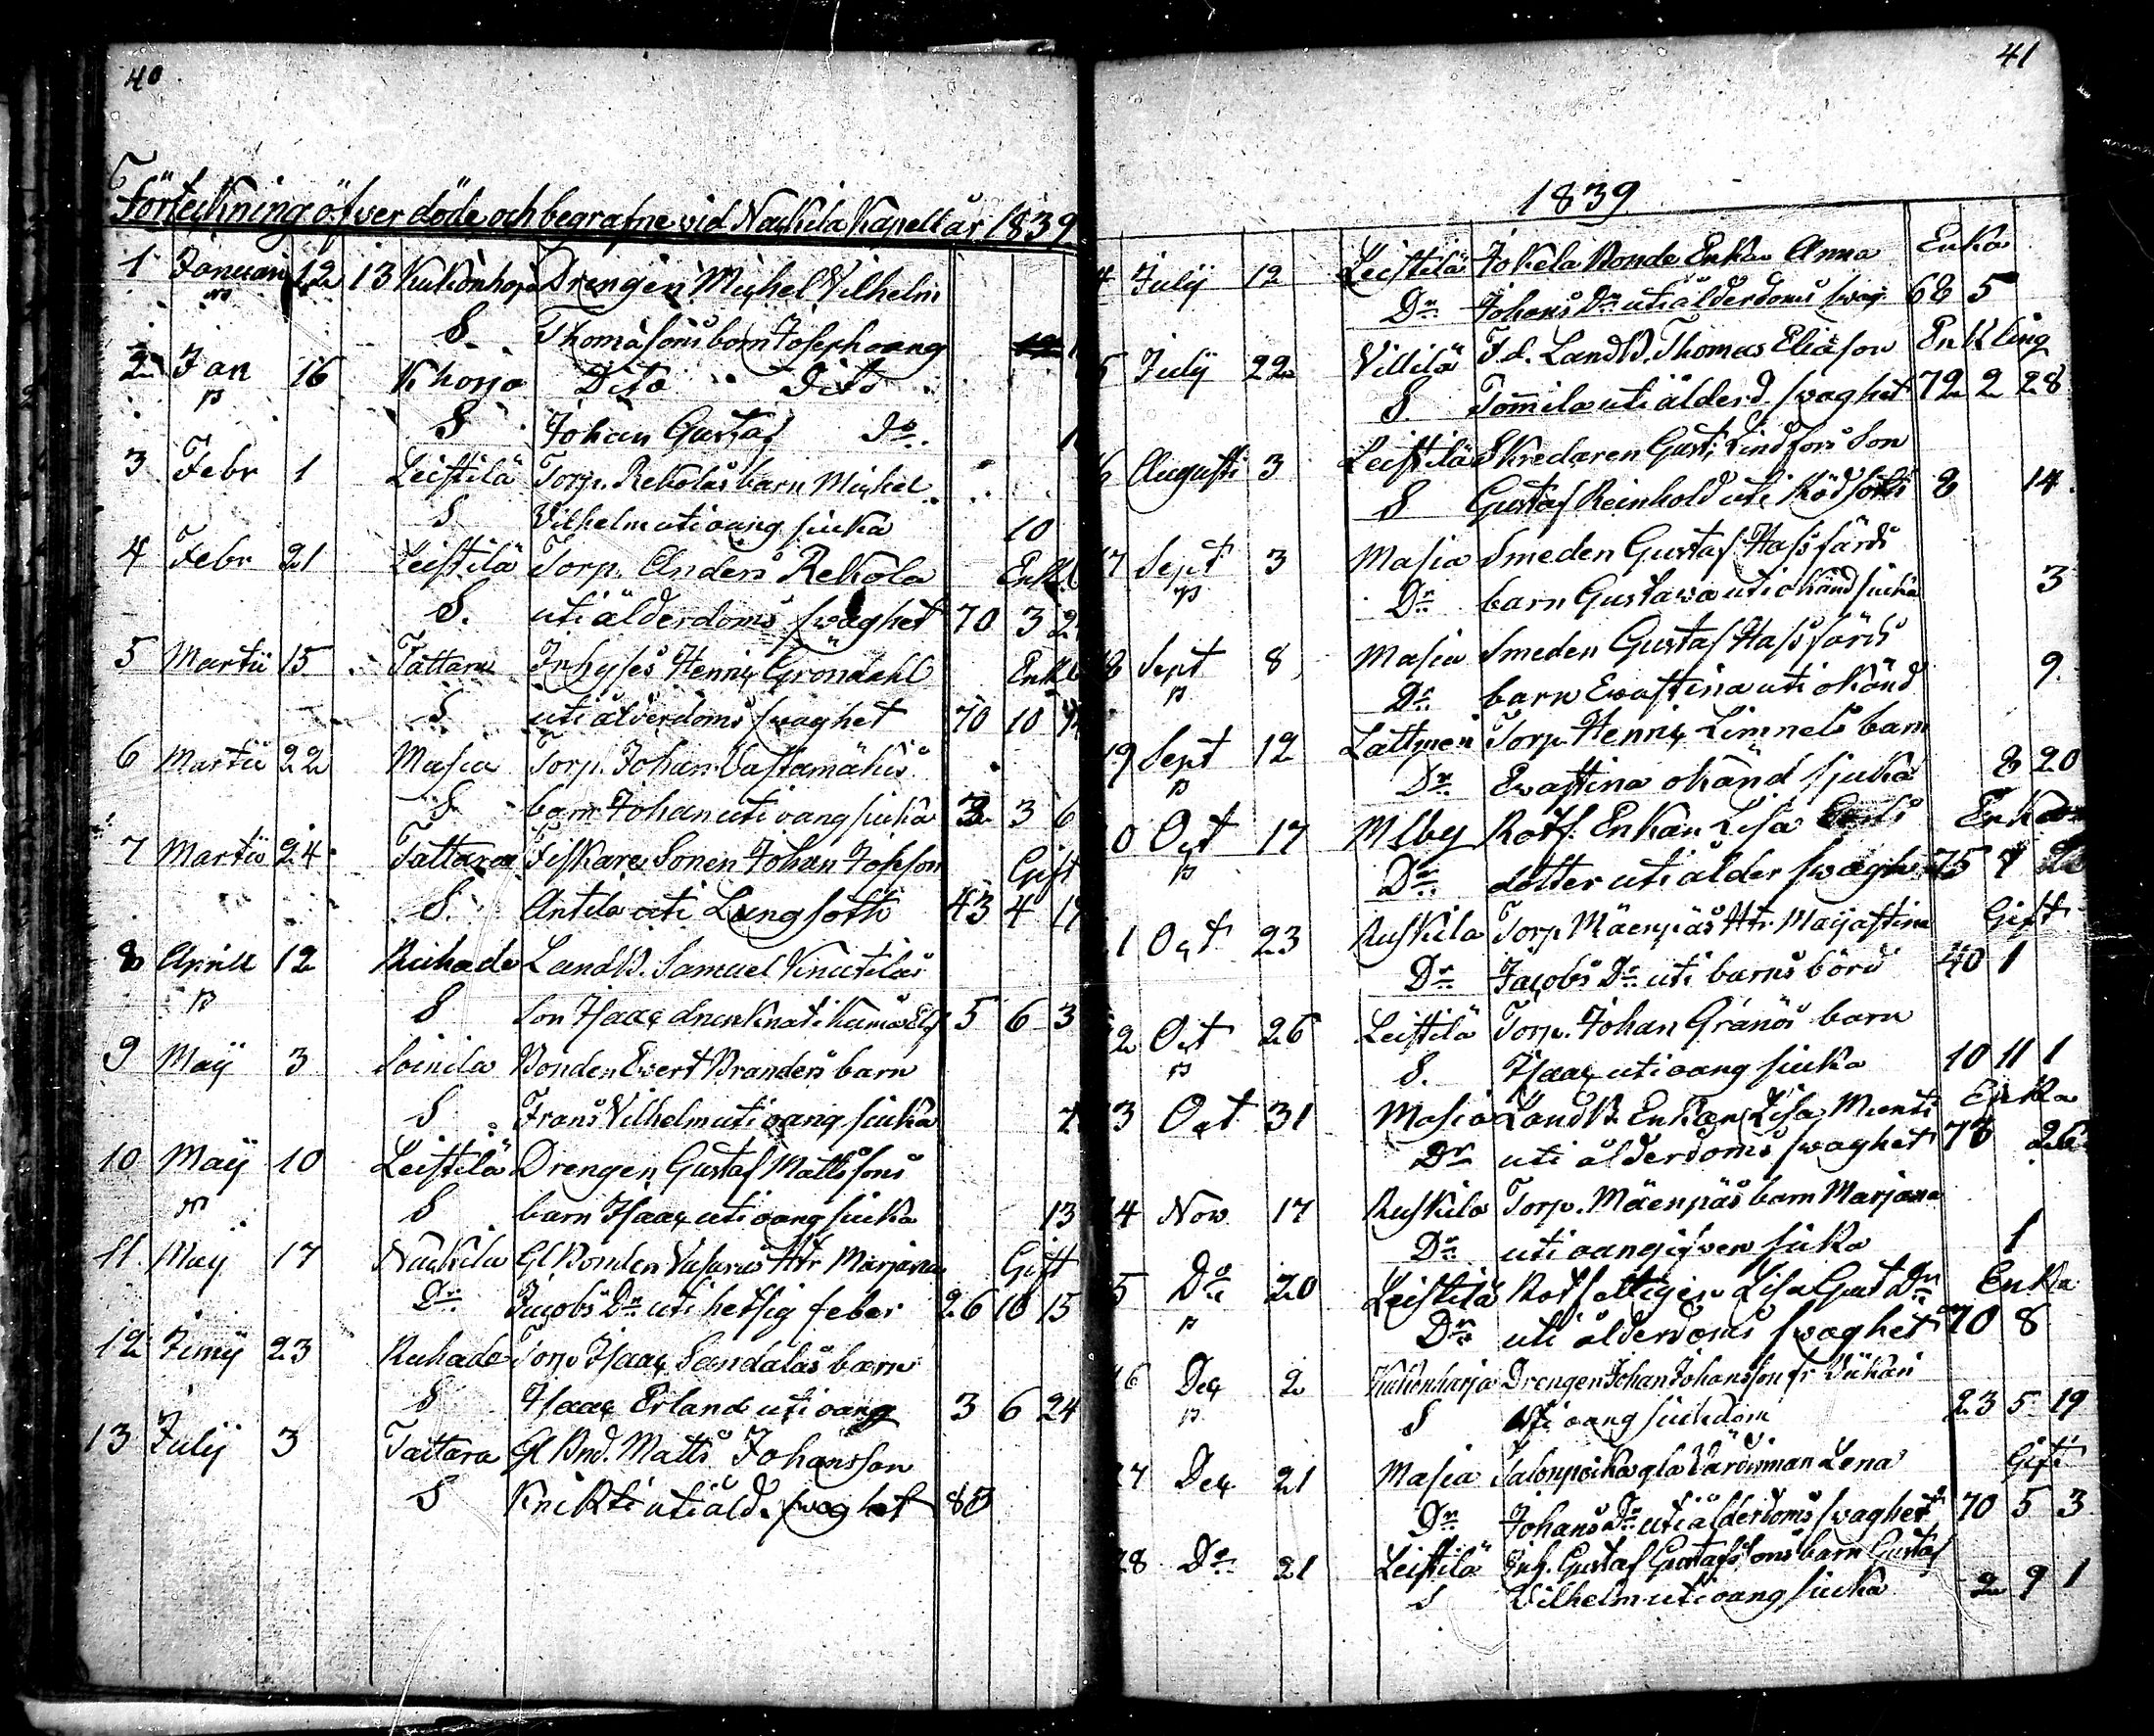 40
Förteckning öfwer döde och begrafne vid Nackila Kapell år 1839
1 Januari 12 13 Kukonharja Drengen Michel Vilhelm
S. Thomasons barn Joseph oang
2 Jan 16 K harja Dito Dito
S Johan Gustaf Do
3 Febr 1 Leistilä Torp. Rekolas barn Michel
S Vilhelm uti oang siuka 10
4 Febr 21 Leistilä Torp. Anders Rekola Enkl
S. uti ålderdoms swaghet 70 3
5 Martii 15 Tattara Inhyses Henric Gröndahl Enkl
S uti ålderdoms swaghet 70 10
6 Martii 22 Masia Torp. Johan Vastamäkis
S barn Johan uti oang siuka 3 6
7 Martii 24 Tattara Fiskare Sonen Johan Josefson Gift
S. Antila uti Lungsotti 43 4
8 Aprill 12 Ruhade LandB. Samuel Knutilas
S Son Isaac drunknat i Kumo Elf 5 6 3
9 Maij 3 Soinila Bonden Evert Branders barn
S Frans Vilhelm uti oang siuka
10 Maij 10 Leistilä Drengen Gustaf Mattssons
S barn Isaac uti oang siuka 13
11 Maij 17 Nackila Gl Bonden Vasaras Htr Marjana Gift
Dr Jacobs Dr uti hetsig feber 26 10 15
12 Junij 23 Ruhade Torp Isaac Sandalas barn
S Isaac Erland uti oang 3 6 24
13 Julij 3 Tattara Gl Bnd. Matts Johansson
S Knikti uti åld. swaghet 83
41
1839
4 Julij 12 Leistilä Jokela Bonde Enka Anna Enka
Dr Johans Dr uti ålderdoms swag 68 5
5 Julij 22 Villilä F.d. LandB. Thomas Eliason Enkling
S. Tommila uti ålderd swaghet 72 2 28
6 Augusti 3 Leistilä Skredaren Gust: Lindfors Son
S Gustaf Reinhold uti Rödsotti 8 14
17 Sept 3 Masia Smeden Gustaf Hassfärds
Dr barn Gustawa uti okänd siuka 3
18 Sept 8 Masia Smeden Gustaf Hassfärds
Dr barn Ewastina uti okänd 9
19 Sept 12 Lattmen Torp Henric Limnels barn
Dr Ewastina okänd sjuka 8 20
0 Oct 17 Mlby Rotf. Enkan Lisa Enka
Dr dotter uti ålder swaghet 75
1 Oct 23 Ruskila Torp Mäenpäs Htr Maijastina Gift
Dr Jacobs Dr uti barns börd 40 1
2 Oct 26 Leistilä Torp. Johan Granös barn
S. Isaac uti oang siuka 10 11 1
3 Oct 31 Masia LandB Enkan Lisa Enka
Dr uti ålderdoms swaghet 78 26
4 Nov 17 Ruskila Torp. Mäenpäs barn Marjana
Dr uti oangifwen siuka 1
5 Do 20 Leistilä Rotfattigen Lisa Gust Dr Enka
Dr uti ålderdoms swaghet 70 8
16 Dec 2 Kukonharja Drengen Johan Johansson fr
S Uti oang siukdom 23 5 19
17 Dec 21 Masia Salonpoika gla Värdinnan Lena Gift
Dr Johans Dr uti ålderdoms swaghet 70 5 3
28 Do 21 Leistilä Inh. Gustaf Gustafssons barn Gustaf
S Vilhelm uti oang siuka 2 9 1